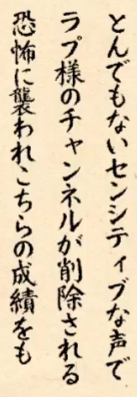 とんでもないセンシティブな声で
ラプ様のチャンネルが削除される
恐怖に襲われこちらの成績をも